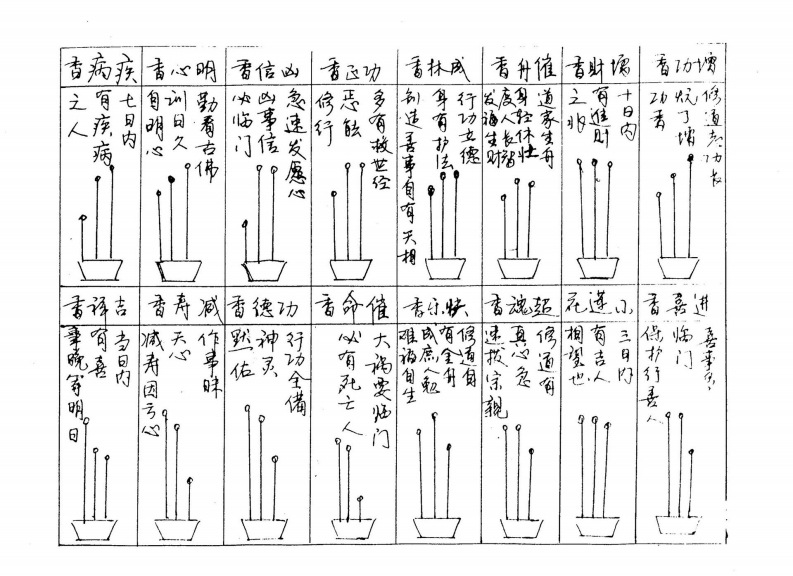 增功香
修道老功夫
功香
增财香
十日内
有进财
之兆
催丹香
道家生丹
身轻体壮
度人长智
发福生财
成林香
行功立德
身有护法
创造善事自有天相
功正香
多有救世经
恶能
修行
凶信香
急速发愿心
凶事信
必临门
明心香
勤看古佛
训日久
自明心
疾病香
七日内
有疾病
之人
进喜香
临门
保护行善人
小莲花
三日内
有吉人
相望也
超魂香
修道有
真心急
速拔宗亲
快乐香
修道自
有金丹
成庶人勉
难福自生
催命香
大祸要临门
必有死亡人
功德香
行功全备
神灵
默佑
减寿香
作事昧
天心
减寿因亏心
吉祥香
当日内
有喜
早晚等明日